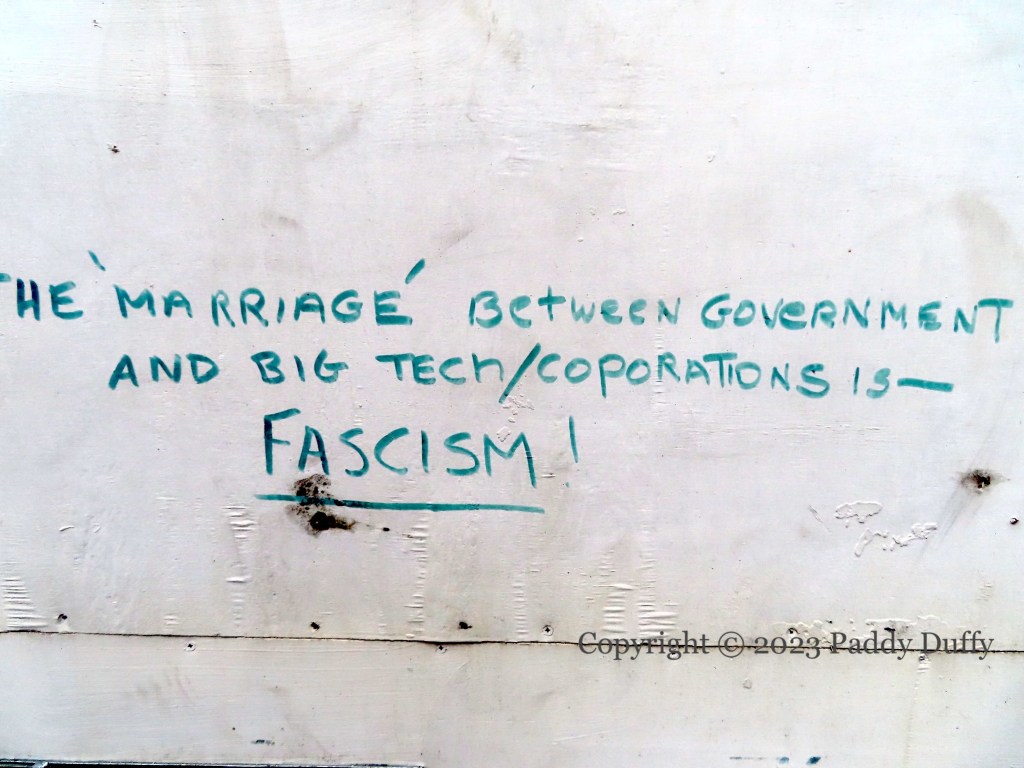 THE 'MARRIAGE' BetweeN GOVeRNMENT
AND BIG TECH/COPORATIONS IS—
FASCISM!
Copyright © 2023 Paddy Duffy